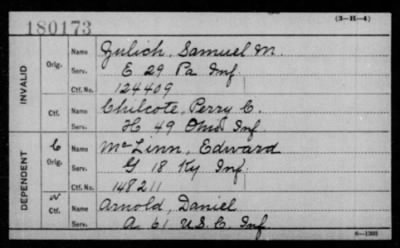 180173
(3—H—4)
INVALID
Orig.
Name Zulich, Samuel M.
Serv. E 29 Pa Inf
Ctf. No. 124409
Ctf.
Name Chilcote, Perry C.
Serv. H 49 Ohio Inf
DEPENDENT
C
Orig.
Name McLinn, Edward
Serv. G 18 Ky Inf.
Ctf. No. 148211
Ctf.
Name Arnold, Daniel
Serv. A 61 U.S.C. Inf